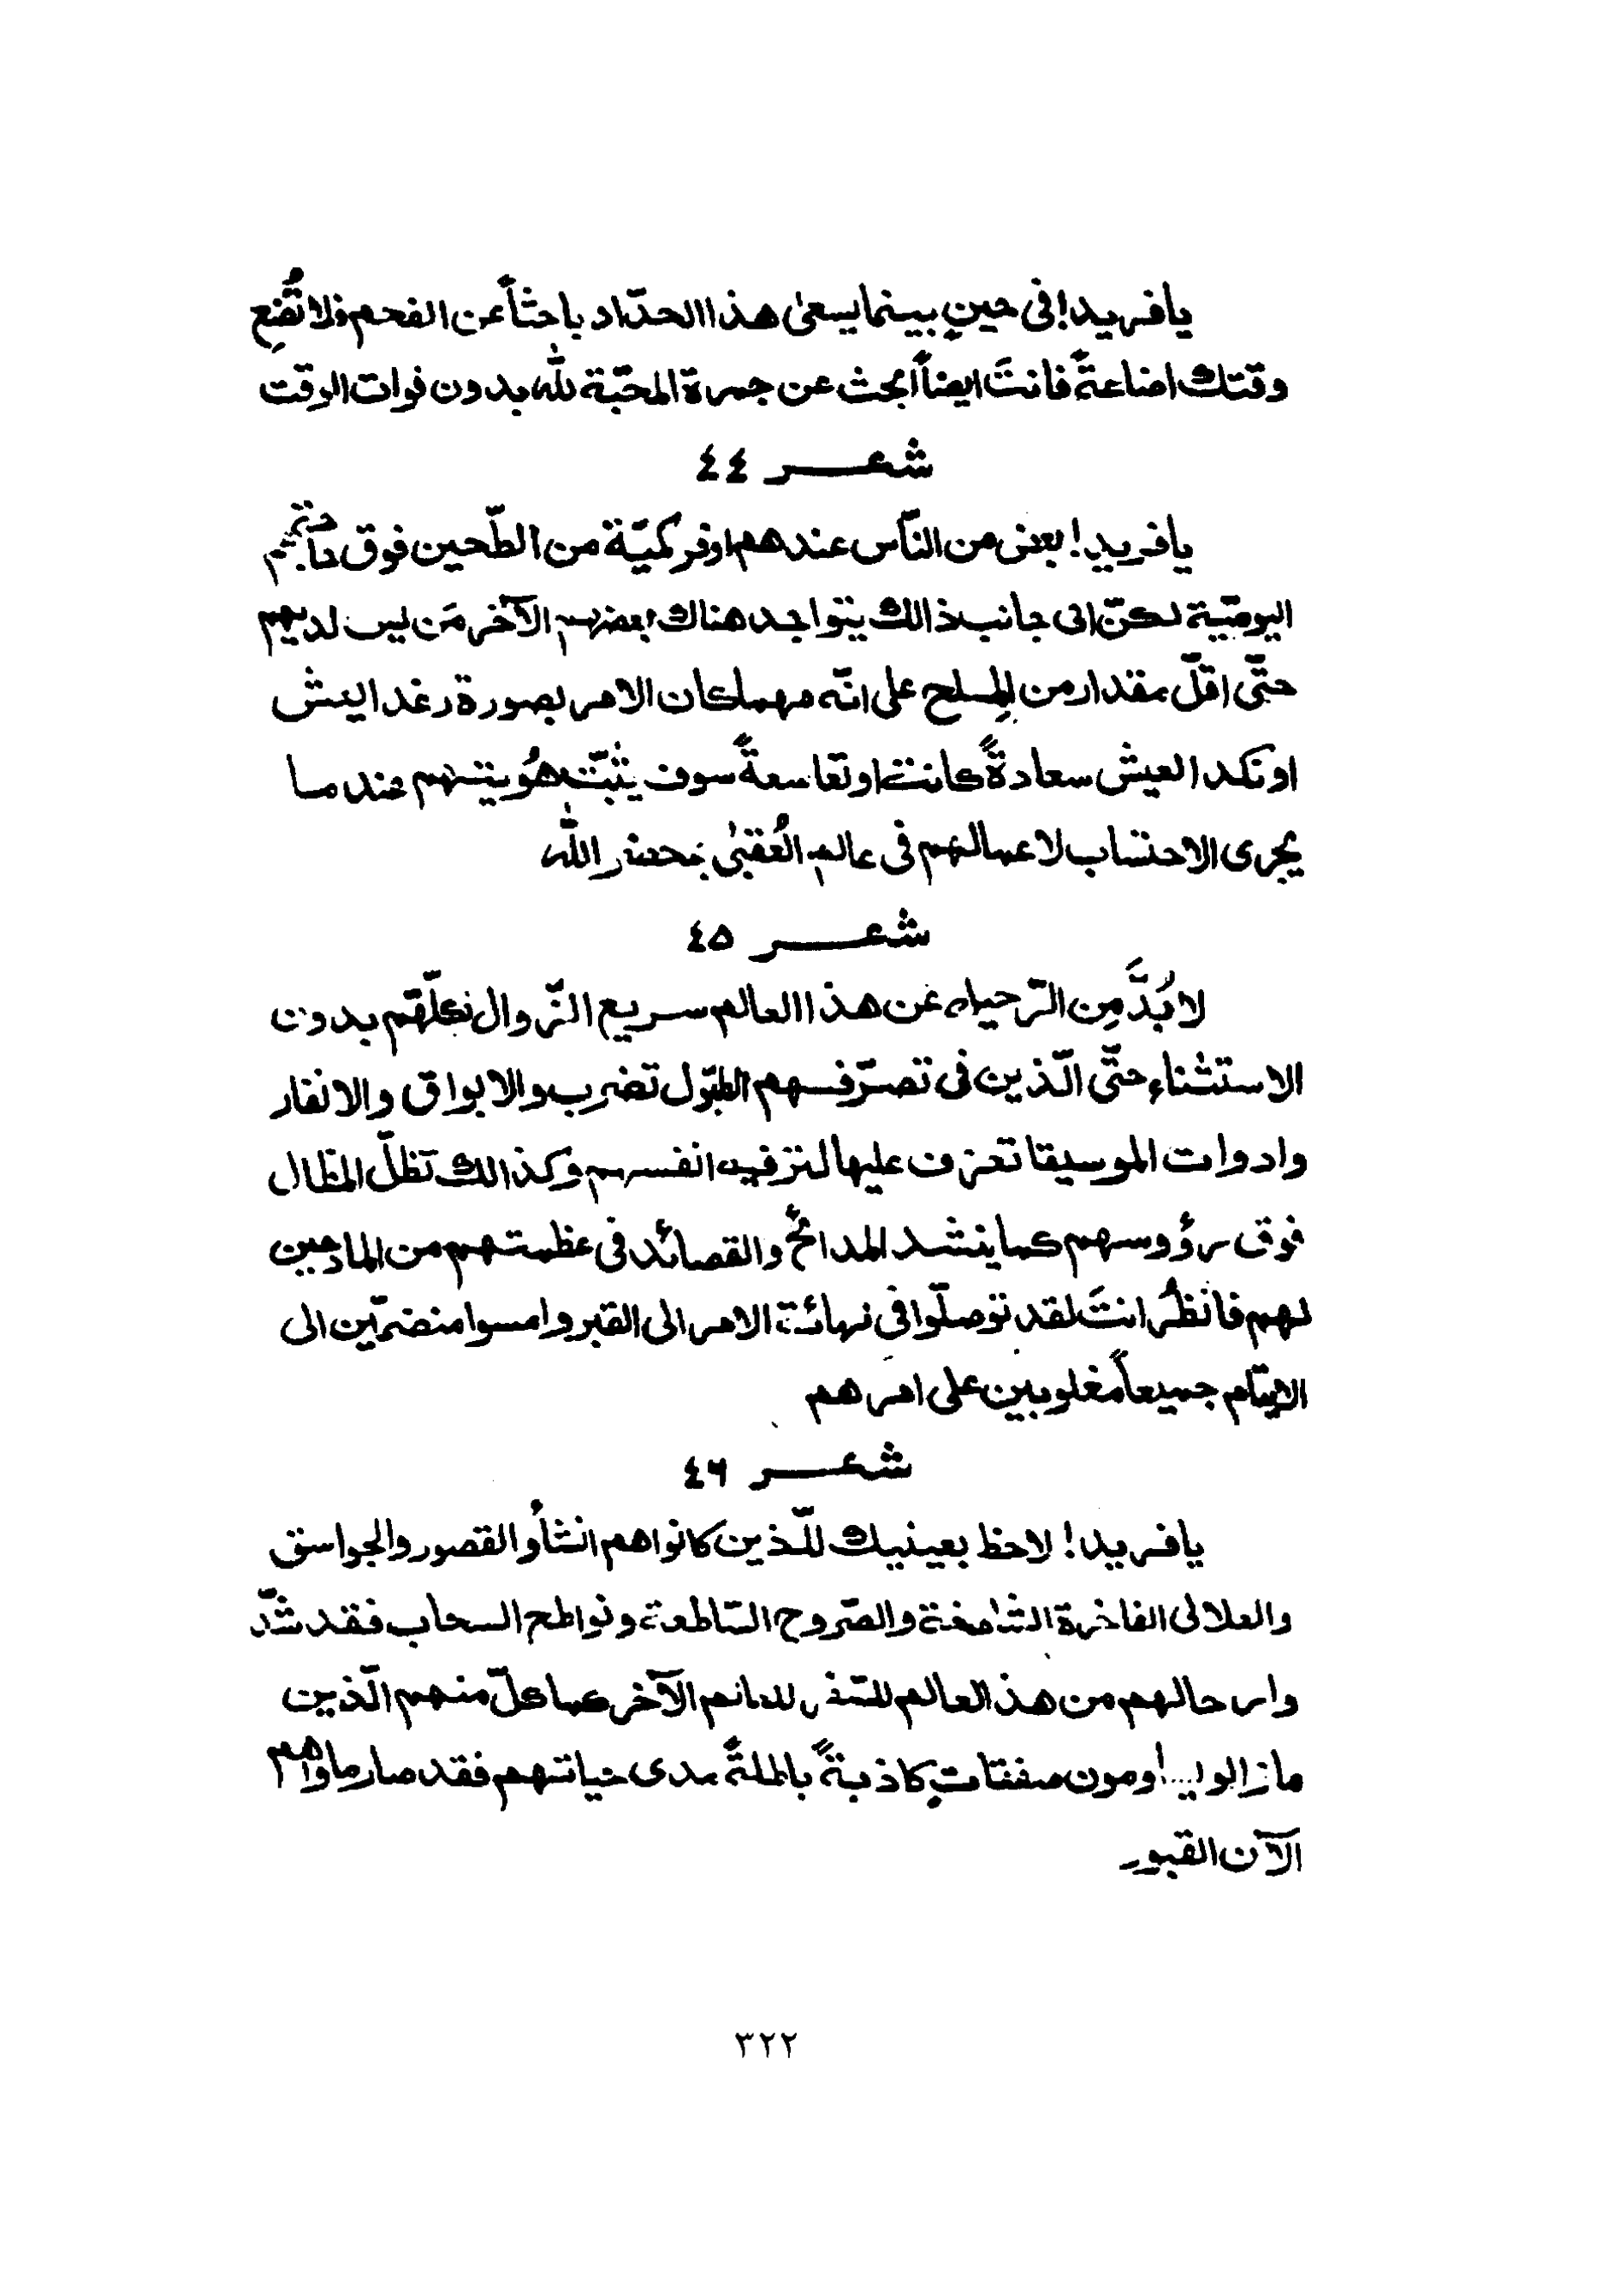 يا فريد! فى حينٍ بينما يسعىٰ هذا الحدّاد باحثاً عن الفحم فلا تُضِع
وقتك اضاعةً فانتَ ايضاً ابحث عن جمرة المحبّة لله بدون فوات الوقت
شعر ٤٤
يا فريد! بعض من النّاس عندهم اوفر كميّة من الطّحين فوق حاجتهم
اليوميّة لكنّ الى جانب ذالك يتواجد هناك بعضهم الآخر مَن ليس لديهم
حتّى اقلّ مقدار من المِلح على انّه مهما كان الامر بصورة رغد العيش
او نكد العيش سعادةً كانت او تعاسةً سوف يثبّت هُويتهم عندما
يجرى الاحتساب لاعمالهم فى عالم العُقبىٰ بمحضر الله
شعر ٤٥
لا بُدَّ مِن الرّحيل عن هذا العالم سريع الزّوال لكلّهم بدون
الاستثناء حتّى الّذين فى تصرّفهم الطبول تضرب والابواق والانفار
وادوات الموسيقا تعزف عليها لترفيه انفسهم وكذالك تظلّ المظال
فوق رؤوسهم كما ينشد المدائح والقصائد فى عظمتهم من المادحين
لهم فانظُر انتَ لقد توصلّوا فى نهائة الامر الى القبر وامسوا منضمّين الى
الايتام جميعاً مغلوبين على امرهم
شعر ٤٦
يا فريد! لاحظ بعينيك للّذين كانوا هم انشأُوا القصور والجواسق
والعلالى الفاخرة الشامخة والصّروح السّاطعة ونواطح السحاب فقد شدّ
وا رحالهم من هذ العالم للسّفر للعالم الآخر كما كلّ منهم الّذين
مازالوا يساومون صفقاتٍ كاذبةً باطلةً مدى حياتهم فقد صار ماواهم
الآن القبور
٣٢٢